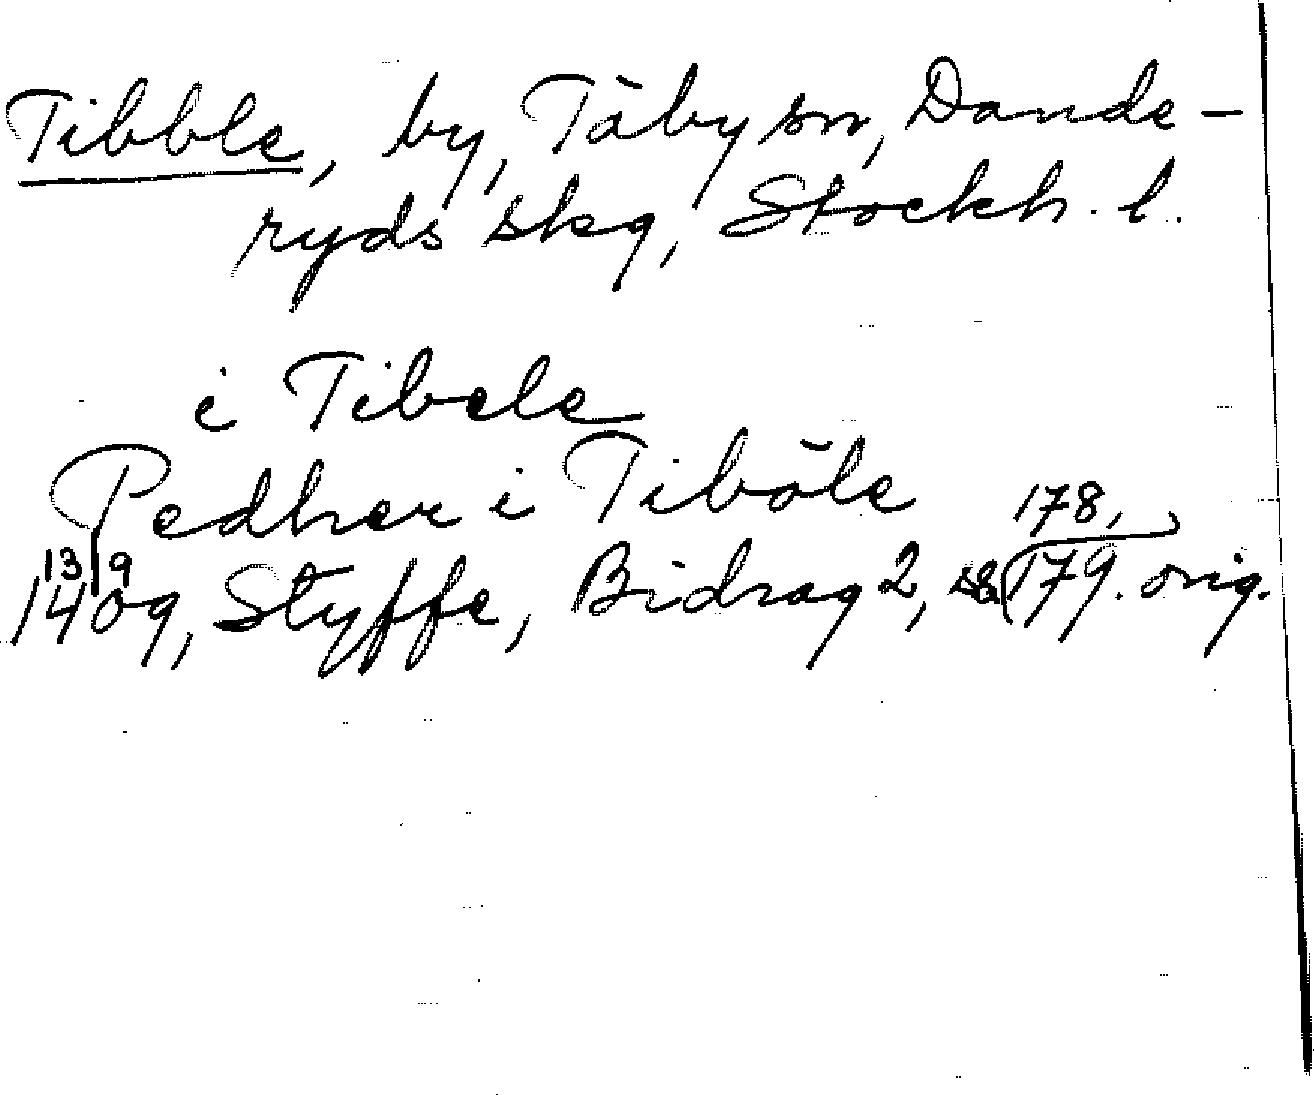 Tibble, by, Täby sn, Dande-
ryds skg, Stockh. l.
i Tibele
Pedher i Tiböle
13/9 178,
1409, Styffe, Bidrag 2, s. 179. orig.